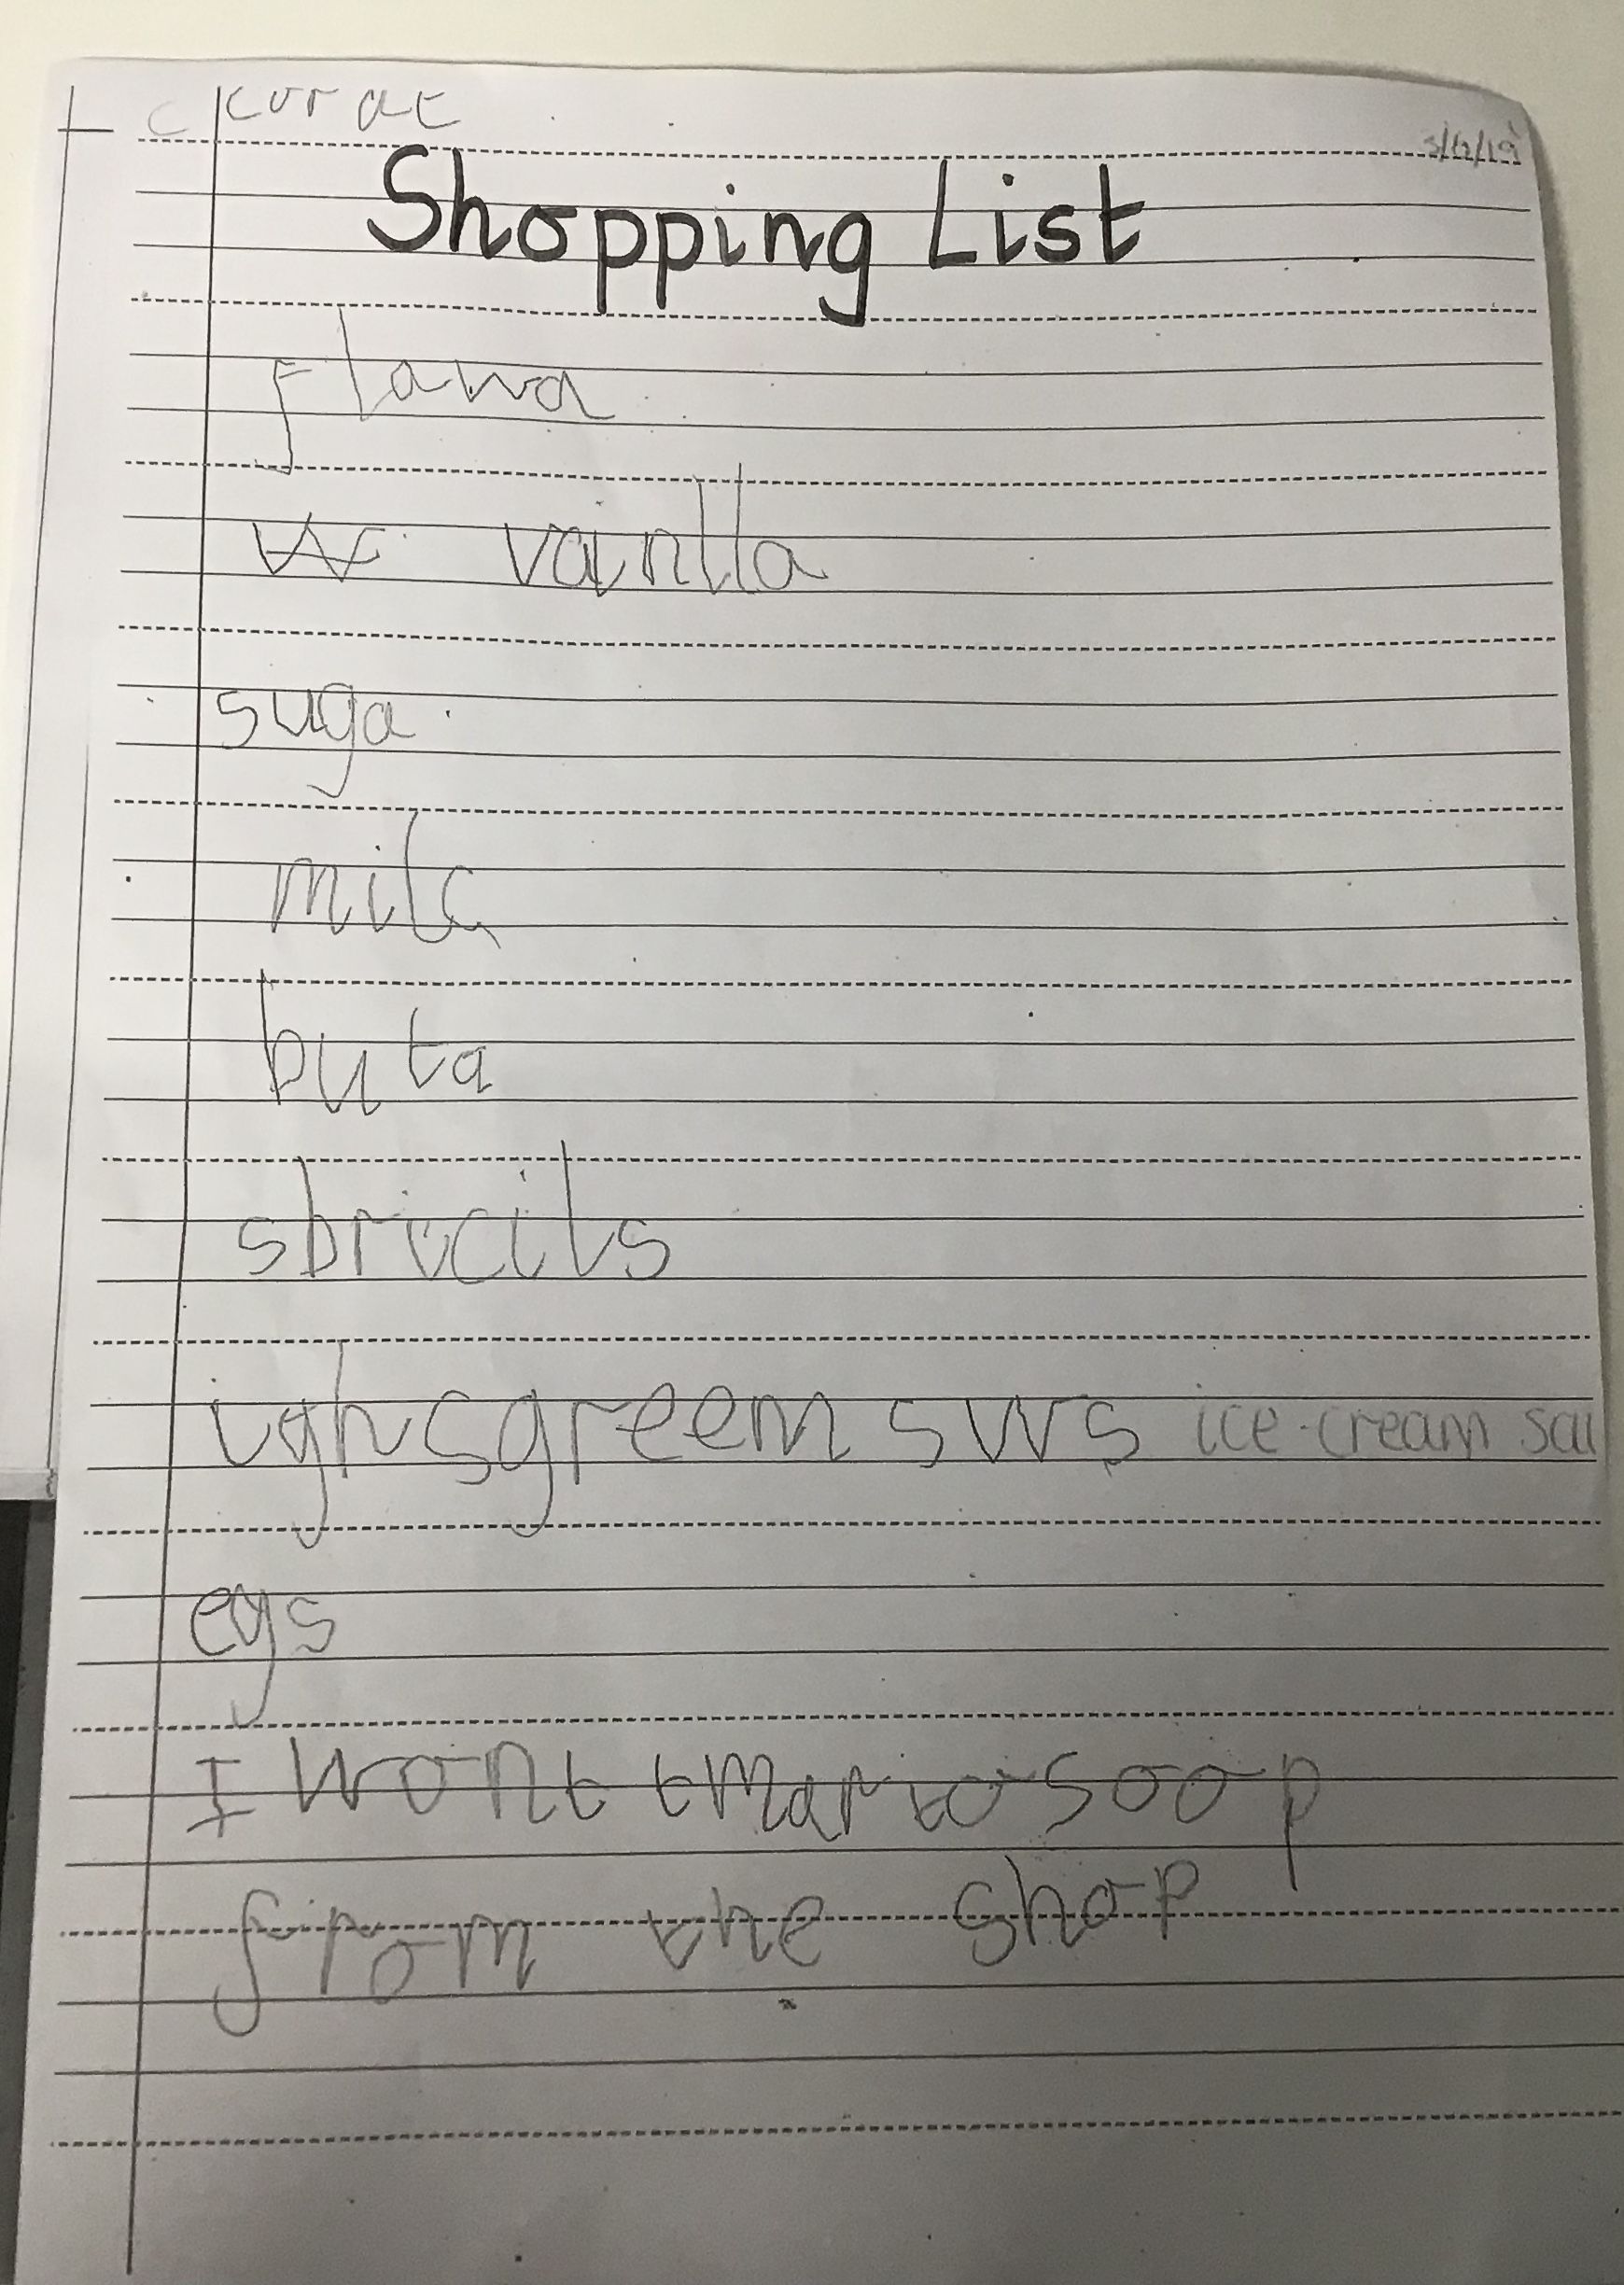 kurat
Shopping List
flawa
vainlla
suga
milc
buta
sbricils
ighsgreem survs ice-cream sau
egs
I wont tmarto soop
from the shop